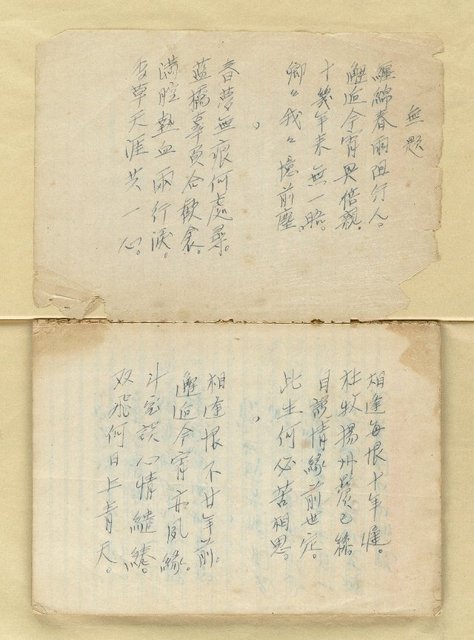 無題
纏綿春雨阻行人。
邂逅今宵倍親。
十幾年來無一晤。
卿々我々憶前塵。
春夢無痕何處尋。
藍橋辜負合歡衾。
滿腔熱血兩行淚。
香草天涯共一心。
相逢每恨十年遲。
杜牧揚州夢已
自情緣前世定。
此生何必苦相思。
相逢恨不廿年前。
邂逅今宵亦夙緣。
斗室談心情繾綣。
双飛何日上青天。